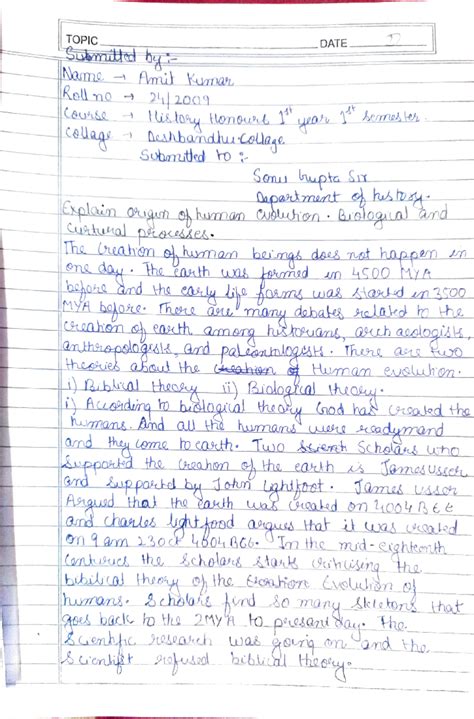 TOPIC DATE
Submitted by :-
Name → Amit Kumar
Roll no → 24/2009
Course → History Honours 1st year 1st semester
Collage → Deshbandhu Collage
Submitted to :-
Sonu Gupta Sir
Department of history.
Explain origin of human evolution. Biological and
Curtural processes.
The Creation of human beings does not happen in
one day. The earth was formed in 4500 MYA
before and the early life forms was started in 3500
MYA before. There are many debates related to the
creation of earth among historians, archaeologists,
anthropologists, and paleontologists. There are two
theories about the creation of Human evolution.
i) Biblical theory ii) Biological theory.
i) According to biological theory God has created the
humans. And all the humans were readymand
and they come to earth. Two Scholars who
supported the creation of the earth is James Usser
and supported by John Lightfoot. James Usser
Argued that the earth was created on 4004 BCE
and Charles lightfood argues that it was created
on 9 am 23 oct 4004 BCE. In the mid-eighteenth
centuries the scholars starts criticising the
bibilical theory of the Evolution of
humans. Scholars find so many skeletons that
goes back to the 2MYA to present day. The
Scientific research was going on and the
Scientist refused biblical theory.